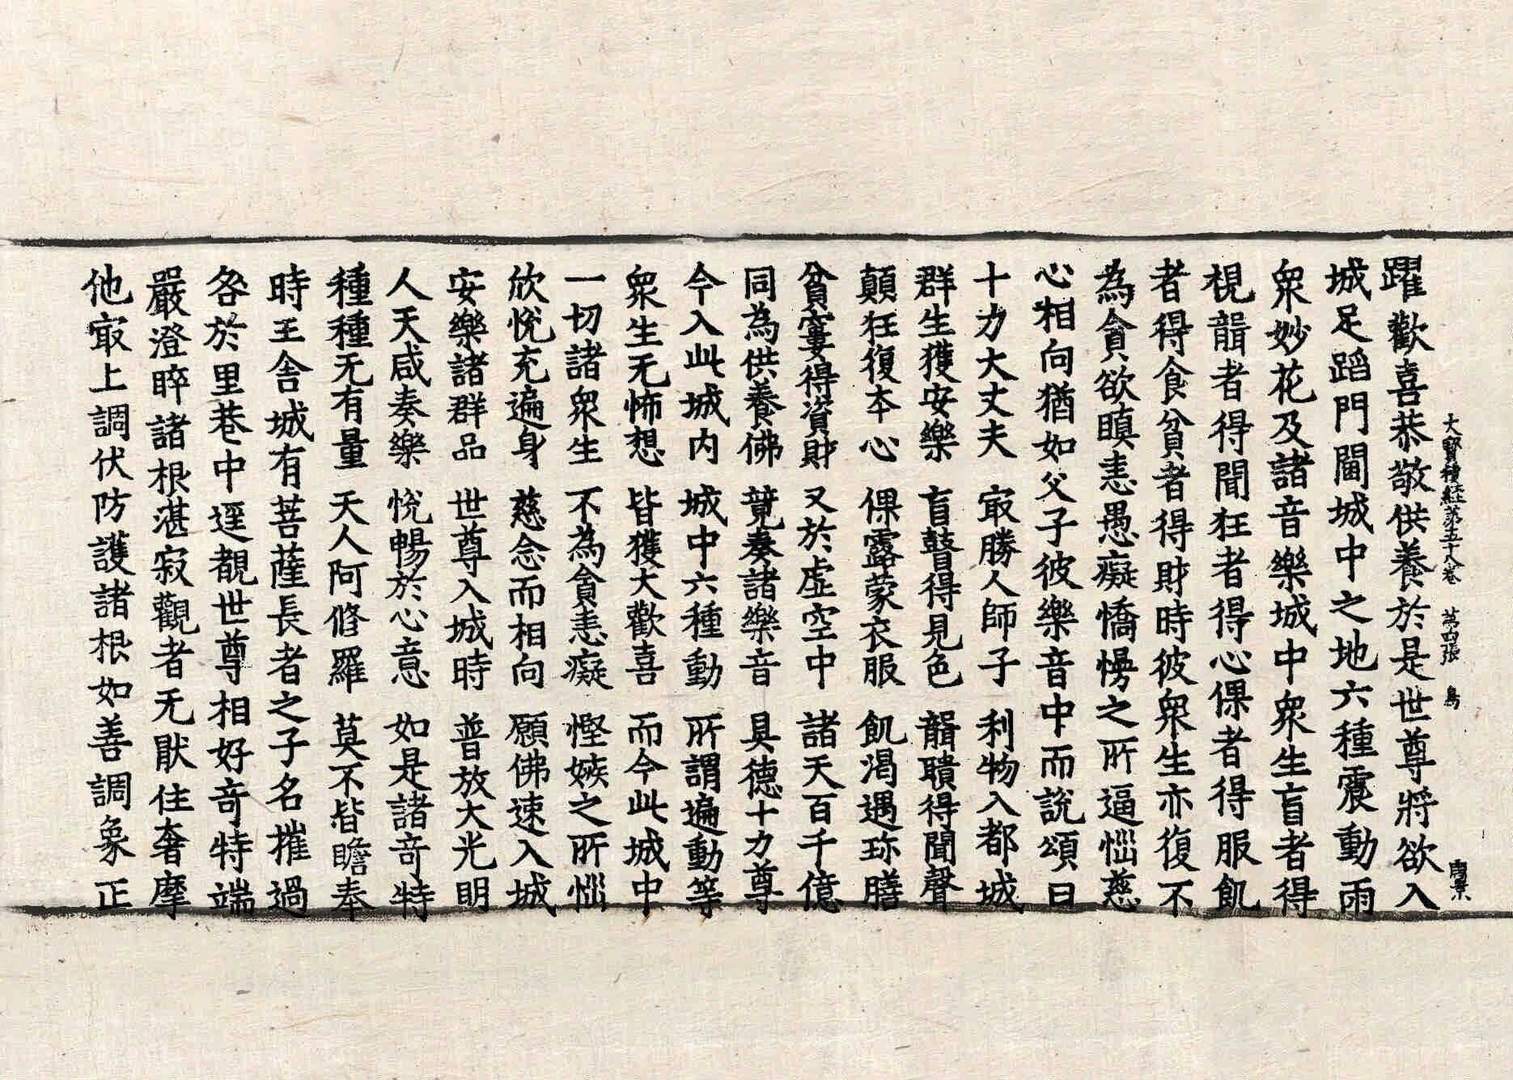 大寶積經第五十八卷 第四張 鳥
躍歡喜恭敬供養於是世尊將欲入
城足蹈門閫城中之地六種震動雨
衆妙花及諸音樂城中衆生盲者得
視聾者得聞狂者得心倮者得服飢
者得食貧者得財時彼衆生亦復不
為貪欲瞋恚愚癡憍慢之所逼惱慈
心相向猶如父子彼樂音中而說頌曰
十力大丈夫 㝡勝人師子 利物入都城
群生獲安樂 盲瞽得見色 聾聵得聞聲
顛狂復本心 倮露蒙衣服 飢渴遇珎膳
貧窶得資財 又於虛空中 諸天百千億
同為供養佛 競奏諸樂音 具德十力尊
今入此城内 城中六種動 所謂遍動等
衆生无怖想 皆獲大歡喜 而今此城中
一切諸衆生 不為貪恚癡 慳嫉之所惱
欣悅充遍身 慈念而相向 願佛速入城
安樂諸群品 世尊入城時 普放大光明
人天咸奏樂 悅暢於心意 如是諸竒特
種種无有量 天人阿修羅 莫不皆瞻奉
時王舍城有菩薩長者之子名摧過
咎於里巷中逕覩世尊相好竒特端
嚴澄睟諸根湛寂觀者无猒住奢摩
他㝡上調伏防護諸根如善調象正